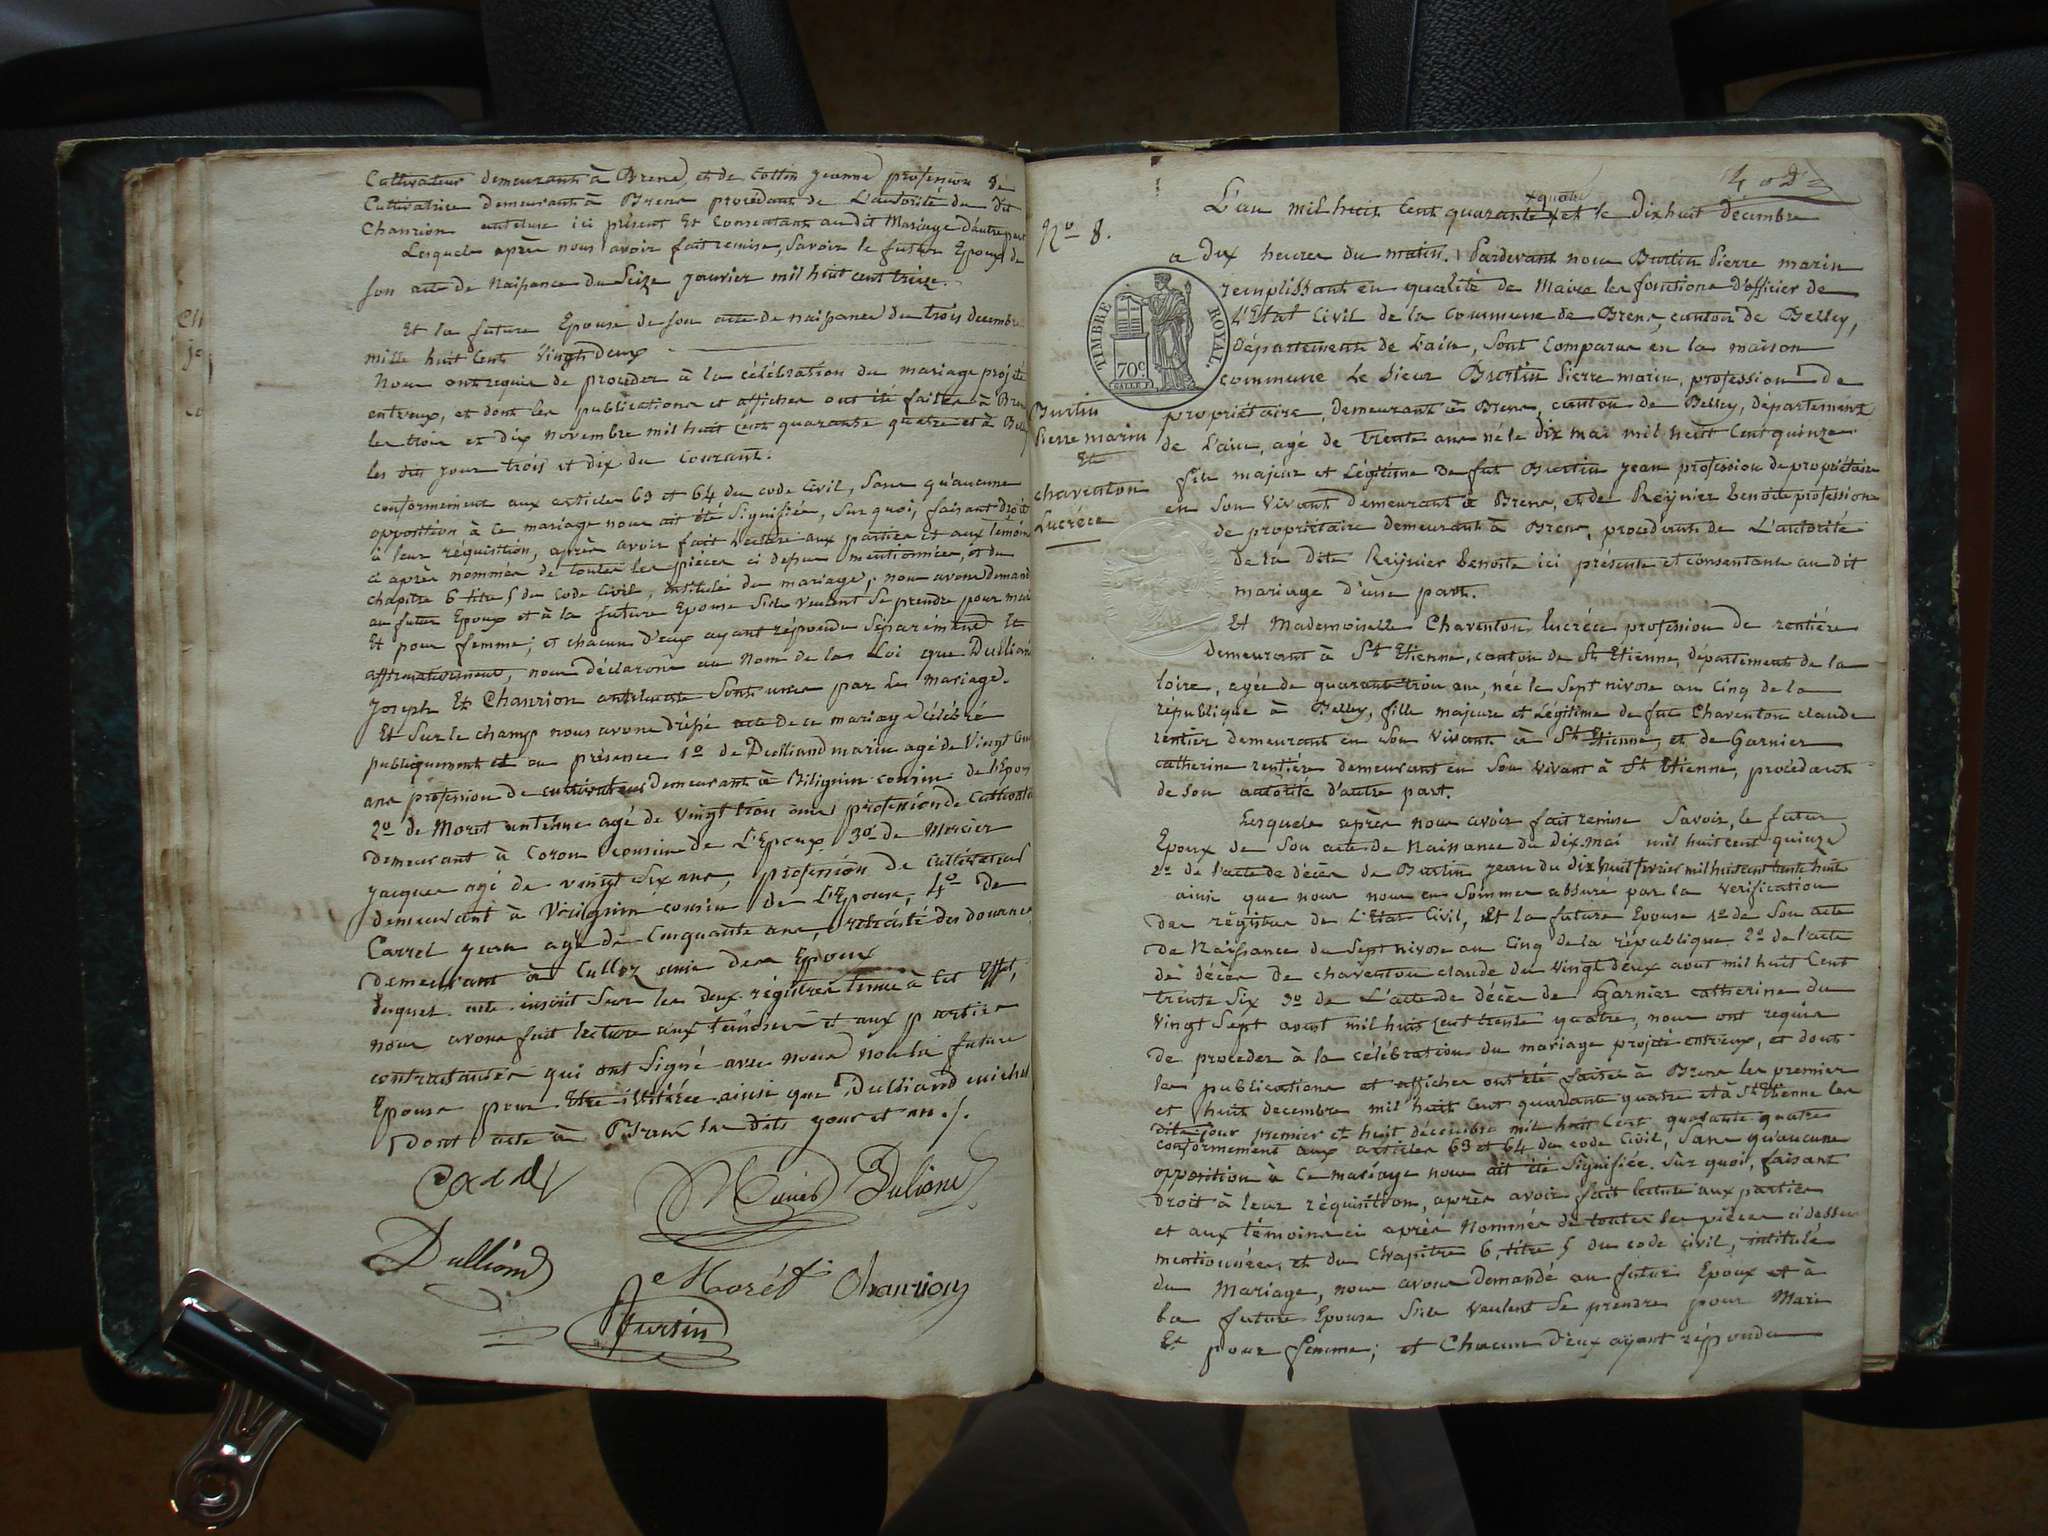 Cultivateur demeurant à Brens, et de Cottin Jeanne profession de
Cultivatrice demeurant à Brens procédant de L'autorité du dit
Chanrion antelme ici présent Et Consentant au dit Mariage d'autre part
Lesquels après nous avoir fait remise, Savoir le futur Epoux de
son acte de Naissance du Seize janvier mil huit cent treize.
Et la future Epouse de son acte de naissance du trois decembre
mille huit Cent vingt deux
Nous ont requis de procéder à la célébration du mariage projeté
entreux, et dont les publications et affiches ont été faites à Brens
les trois et dix novembre mil huit cent quarante quatre et à Belley
les dits jour trois et dix du Courant.
conformement aux articles 63 et 64 du code Civil, Sans qu'aucune
opposition à ce mariage nous ait été Signifiée, Sur quoi, faisant droit
à leur réquisition, après avoir fait lecture aux parties et aux témoins
ci après nommés de toutes les pièces ci dessus mentionnées, et du
chapitre 6 titre 5 du Code Civil, intitulé du mariage, nous avons demandé
au futur Epoux et à la future Epouse S'ils veulent Se prendre pour mari
Et pour femme; et chacun D'eux ayant répondu Séparément Et
affirmativement, nous déclarons au Nom de la Loi que Dulliand
Joseph Et Chanrion antelmette Sont unis par Le Mariage.
Et Sur le champ nous avons dressé acte de ce mariage célébré
publiquement et en présence 1o de Dulliand marin agé de Vingt Cinq
ans profession de cultivateur demeurant à Billignin cousin de l'Epoux
2o de Moret antelme agé de Vingt trois ans profession de Cultivateur
demeurant à Coron cousin de L'Epoux 3o de Mercier
Jacques agé de vingt Six ans, profession de Cultivateur
demeurant à Virignin cousin de L'Epouse, 4o de
Carrel Jean agé de Cinquante ans, retraité des douanes
demeurant à Culloz amie des Epoux
duquel acte inscrit Sur les deux régistres tenus à Cet Effet,
nous avons fait lecture aux témoins et aux parties
contractantes qui ont Signé avec nous non la future
Epouse pour Etre illitérée ainsi que Dulliand michel
Dont acte à Brens les dits jour et an ./.
Mercier Duliand
Dulliand
Morét Chanrion
Burtin
4o 2e
No 8.
L'an mil huit Cent quarante + et le Dix huit décembre
+ quatre
a dix heures du matin. Pardevant nous Burtin Pierre marin
remplissant en qualité de Maire les fonctions d'officier de
L'Etat Civil de la Commune de Brens, canton de Belley,
département de L'ain, Sont Comparus en la maison
commune Le Sieur Burtin Pierre marin, profession de
TIMBRE ROYAL
70c
Burtin
Pierre marin
Et
Charenton
Lucrèce
propriétaire, demeurant à Brens, canton de Belley, département
de L'ain, agé de trente ans né le Dix mai mil huit Cent quinze
fils majeur et Légitime de fut Burtin Jean profession de propriétaire
en Son Vivant demeurant à Brens, et de Reynier benoite profession
de propriétaire demeurant à Brens, procédant de L'autorité
de la dite Reynier benoite ici présente et consentante au dit
mariage d'une part.
Et Mademoiselle Charenton Lucrèce profession de rentière
demeurant à St Etienne, canton de St Etienne, département de la
loire, agée de quarante trois ans, née le Sept nivose an Cinq de la
république à Belley, fille majeure et Légitime de fut Charenton claude
rentier demeurant en Son Vivant à St Etienne, et de Garnier
catherine rentière demeurant en Son Vivant à St Etienne, procédant
de Son autorité d'autre part.
Lesquels après nous avoir fait remise Savoir, le futur
Epoux de Son acte de Naissance du dix mai mil huit cent quinze
2o de l'acte de décès de Burtin Jean du dix huit fevrier mil huit cent trente huit
ainsi que nous nous en Sommes assuré par la Verification
des régitres de L'Etat Civil, Et la future Epouse 1o de Son acte
de Naissance du Sept nivose an Cinq de la république 2o de l'acte
de décès de Charenton claude du Vingt deux aout mil huit Cent
trente Six 3o de L'acte de décès de Garnier catherine du
Vingt Sept aout mil huit Cent trente quatre, nous ont requis
de procéder à la célébration du mariage projeté entreux, et dont
les publications et affiches ont été faites à Brens les premier
et huit decembre mil huit Cent quarante quatre et à St Etienne les
dits jour premier et huit décembre mil huit Cent quarante quatre
conformement aux articles 63 et 64 du code Civil, Sans qu'aucune
opposition à Ce mariage nous ait été Signifiée. Sur quoi, faisant
droit à leur réquisition, après avoir fait lecture aux parties
et aux témoins ci après Nommés de toutes les pièces ci dessus
mentionnées, et du Chapitre 6, titre 5 du code civil, intitulé
du Mariage, nous avons demandé au futur Epoux et à
la future Epouse S'ils veulent Se prendre pour Mari
Et pour femme; et Chacun D'eux ayant répondu